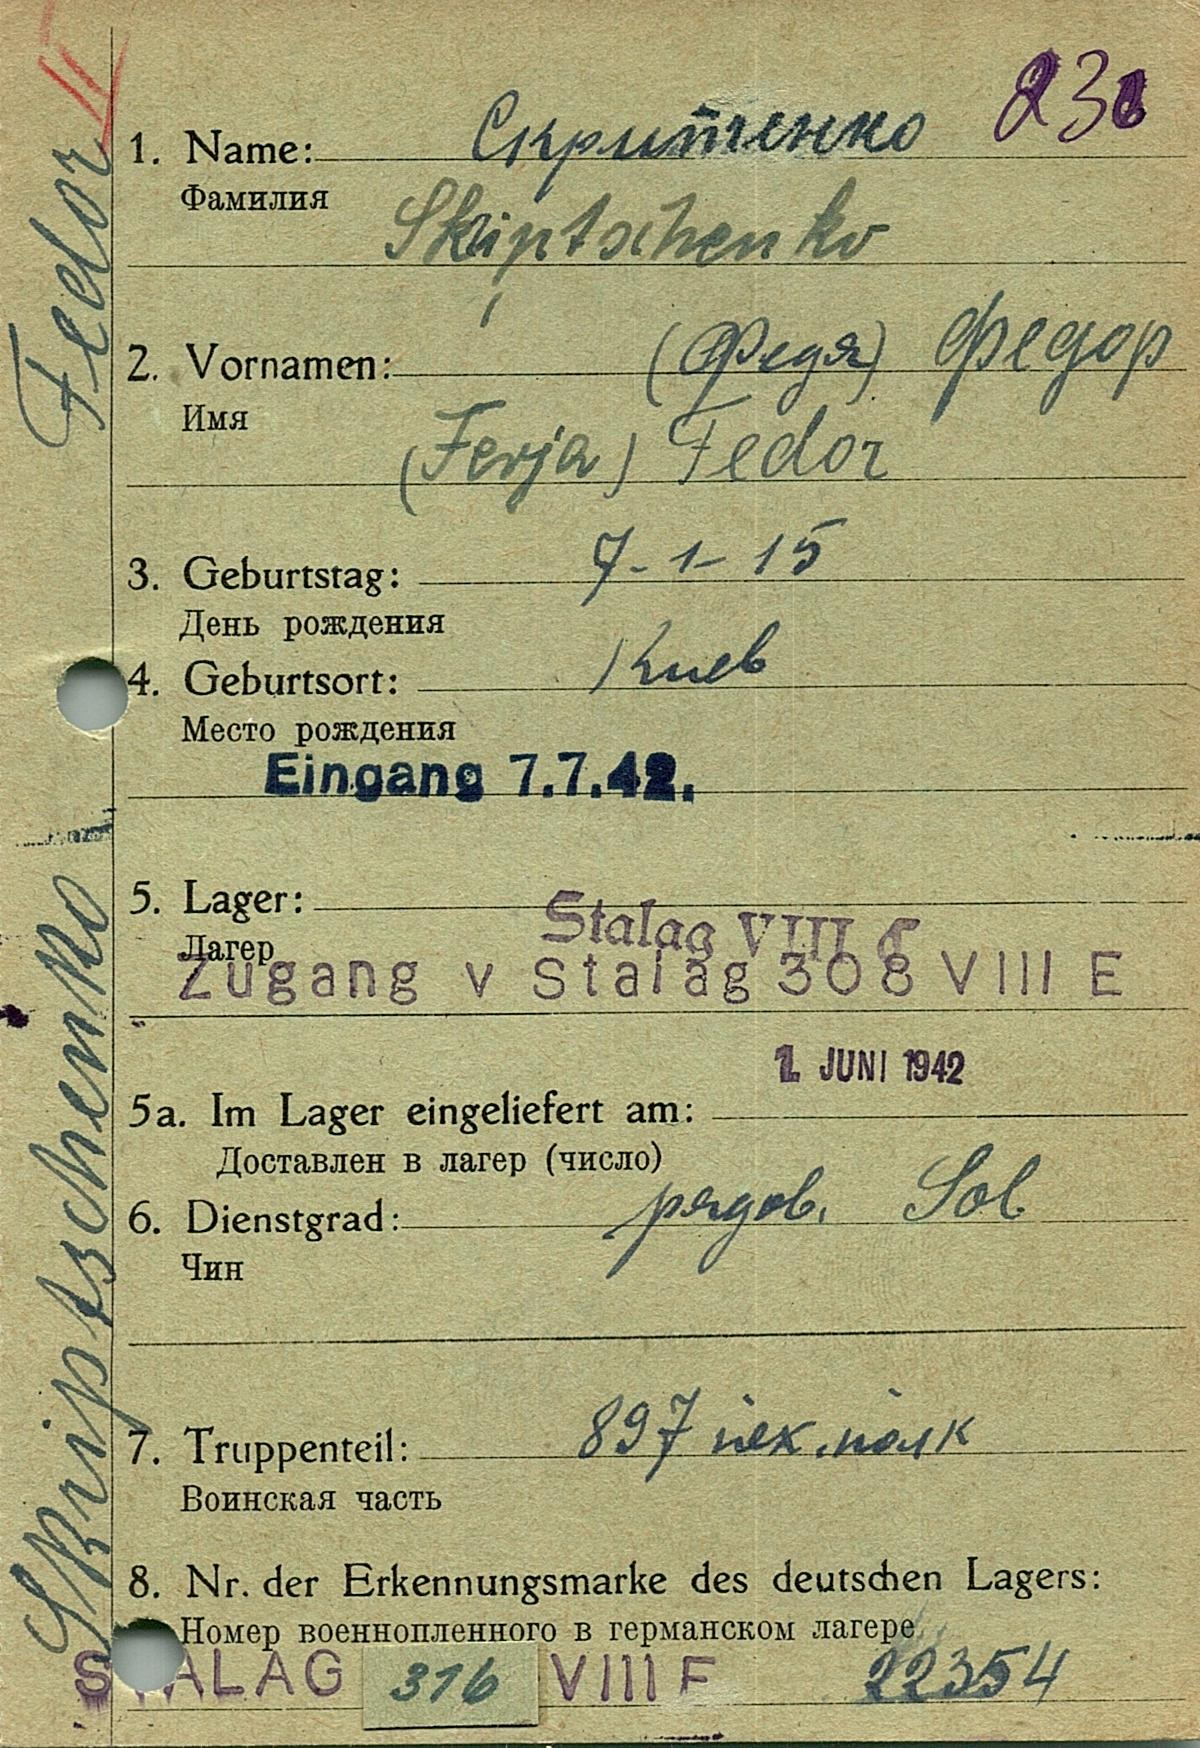 23
1. Name: Скрипченко
Фамилия
Skriptschenko
2. Vornamen: (Федя) Федор
Имя
(Ferja) Fedor
3. Geburtstag: 7-1-15
День рождения
4. Geburtsort: Киев
Место рождения
Eingang 7.7.42.
5. Lager: Stalag VIII
Лагер
Zugang v Stalag 308 VIII E
1. JUNI 1942
5a. Im Lager eingeliefert am:
Доставлен в лагер (число)
6. Dienstgrad: рядов. Sol
Чин
7. Truppenteil: 897 пех. полк
Воинская часть
8. Nr. der Erkennungsmarke des deutschen Lagers:
Номер военнопленного в германском лагере
STALAG 316 VIII F 22354
Skriptschenko Fedor